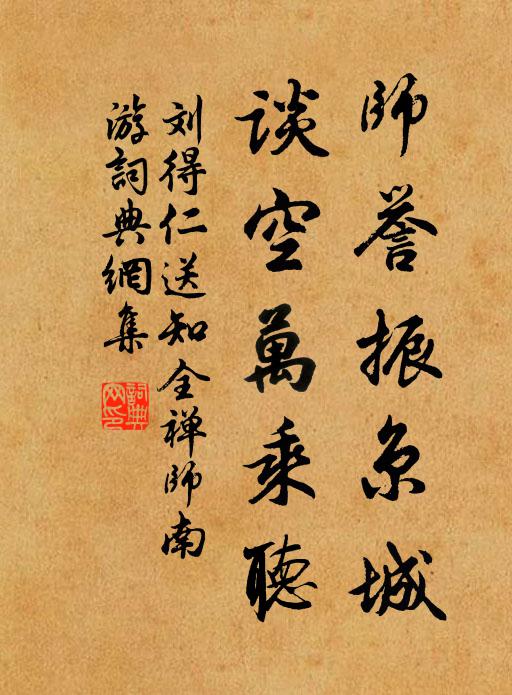 師誉振京城
談空萬乘聽
刘得仁送知全禅師南
游詞典網集
詞典
网印